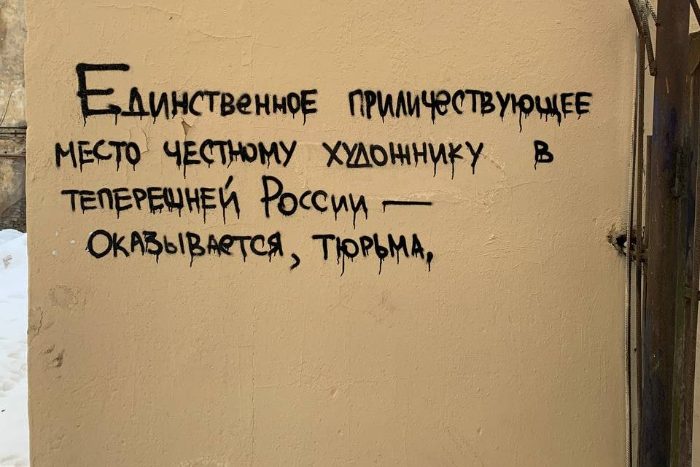 Единственное приличествующее
место честному художнику в
теперешней России —
оказывается, тюрьма,